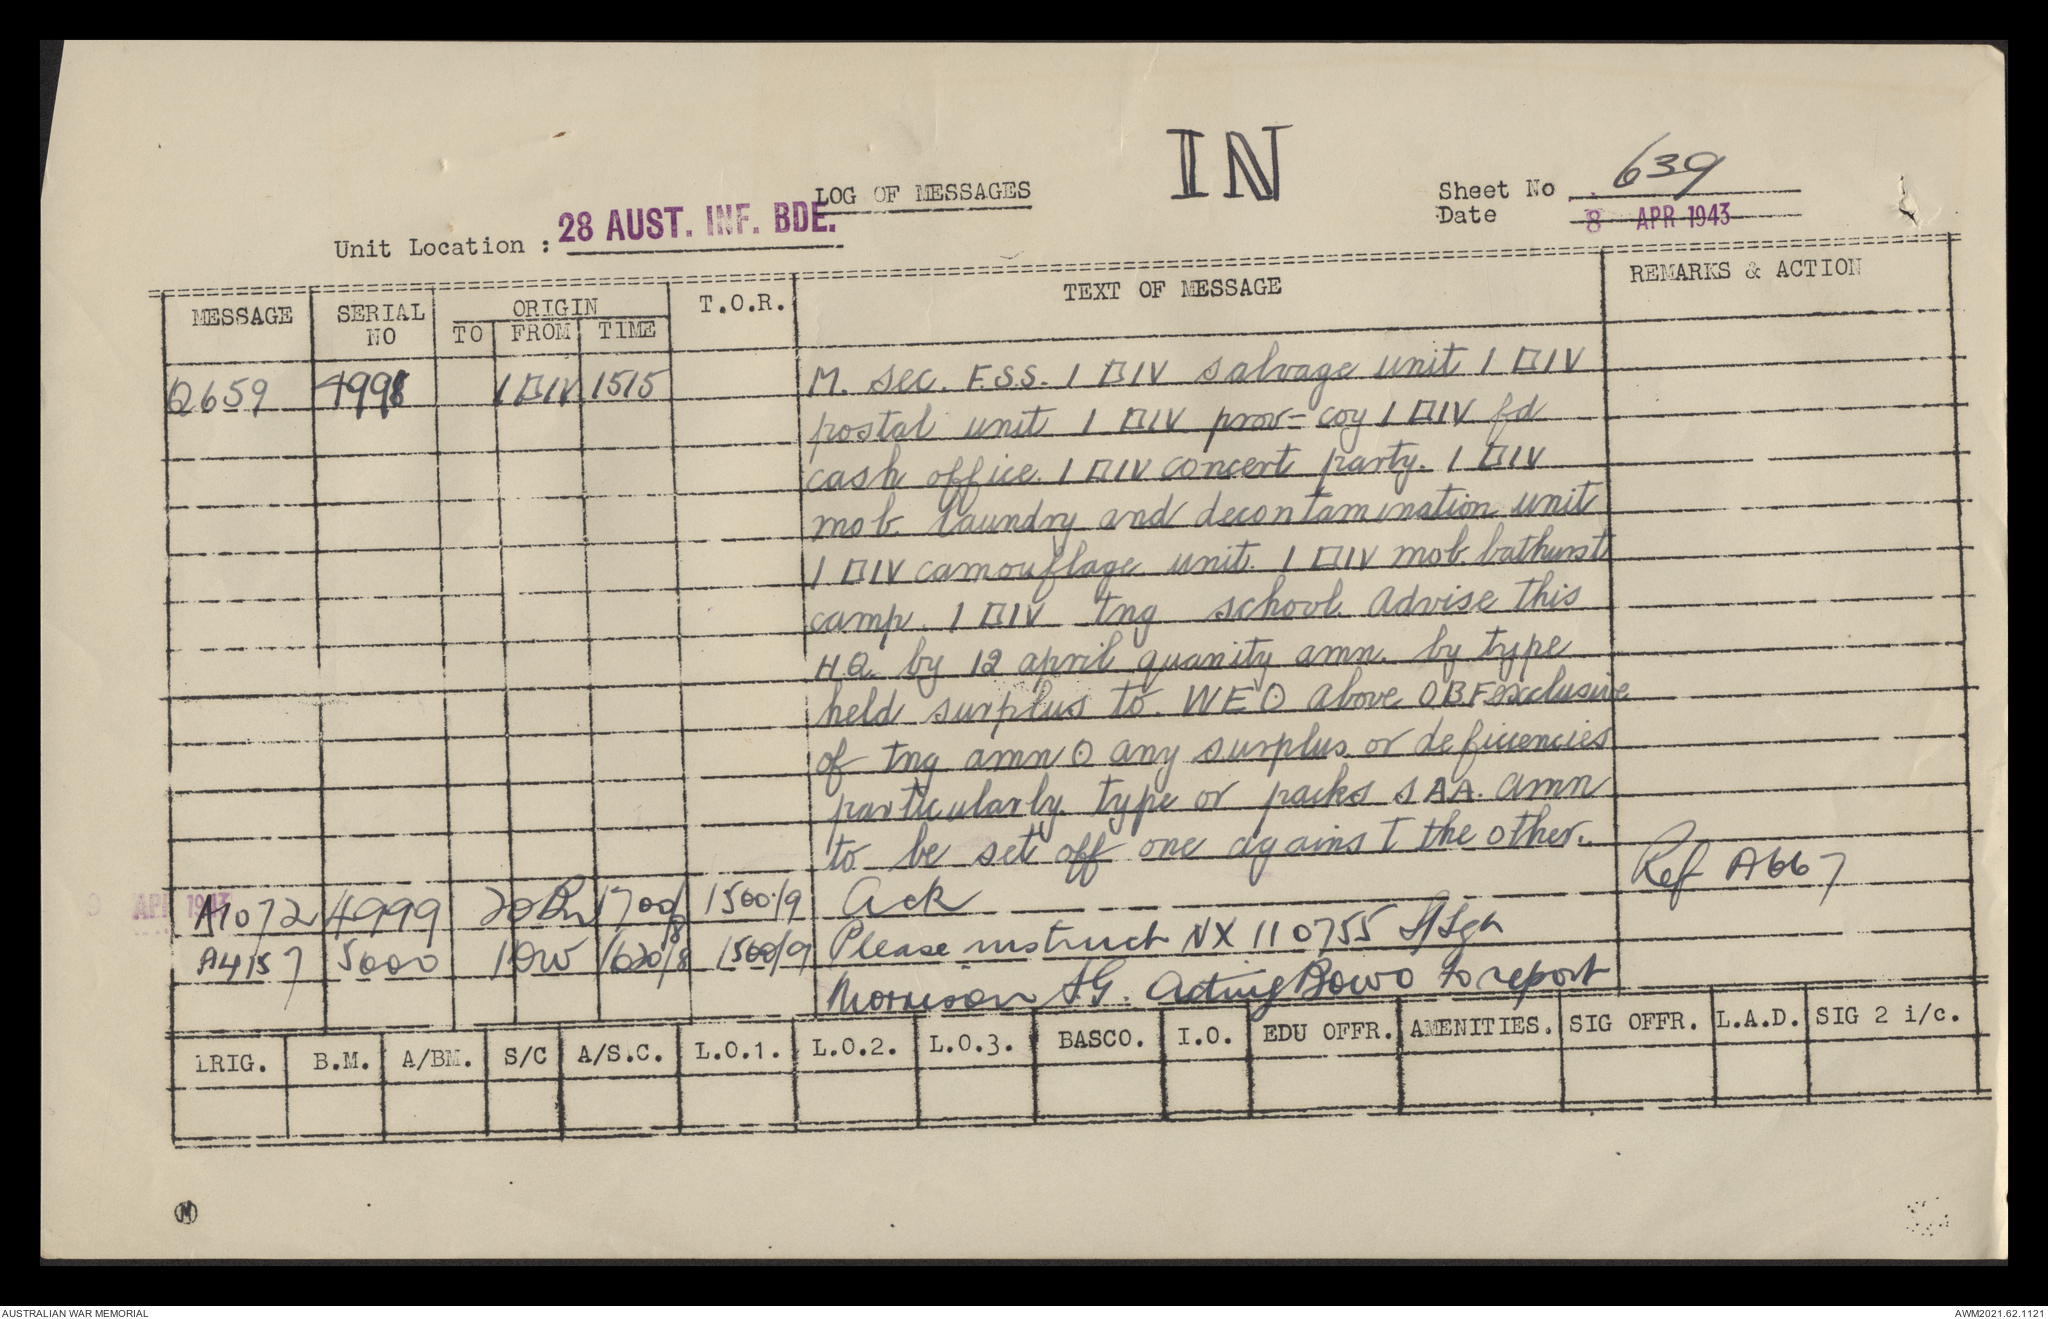 IN
LOG OF MESSAGES
Sheet No 639
Date 8 APR 1943
Unit Location : 28 AUST. INF. BDE.
MESSAGE SERIAL NO ORIGIN TO FROM TIME T.O.R. TEXT OF MESSAGE REMARKS & ACTION
Q659 4998 1 DIV 1515 M. sec. F.S.S. 1 DIV salvage unit 1 DIV
postal unit 1 DIV prov- coy 1 DIV fd
cash office. 1 DIV concert party. 1 DIV
mob. laundry and decontamination unit
1 DIV camouflage unit. 1 DIV mob. bathurst
camp. 1 DIV tng school. Advise this
HQ. by 12 april quanity amn. by type
held surplus to. WE ⊙ above OBF exclusive
of tng amn ⊙ any surplus. or deficiencies
particularly. type or packs SAA. amn
to be set off one against the other.
9 APR 1943
A1072 4999 20 Bn 1700/8 1500/9 Ack Ref A667
A4157 5000 1DIV 1620/8 1500/9 Please instruct NX 110755 S/Sgn
Morrison SG. Acting Bowo to report
LRIG. B.M. A/BM. S/C A/S.C. L.O.1. L.O.2. L.O.3. BASCO. I.O. EDU OFFR. AMENITIES. SIG OFFR. L.A.D. SIG 2 i/c.
M
AUSTRALIAN WAR MEMORIAL
AWM2021.62.1121